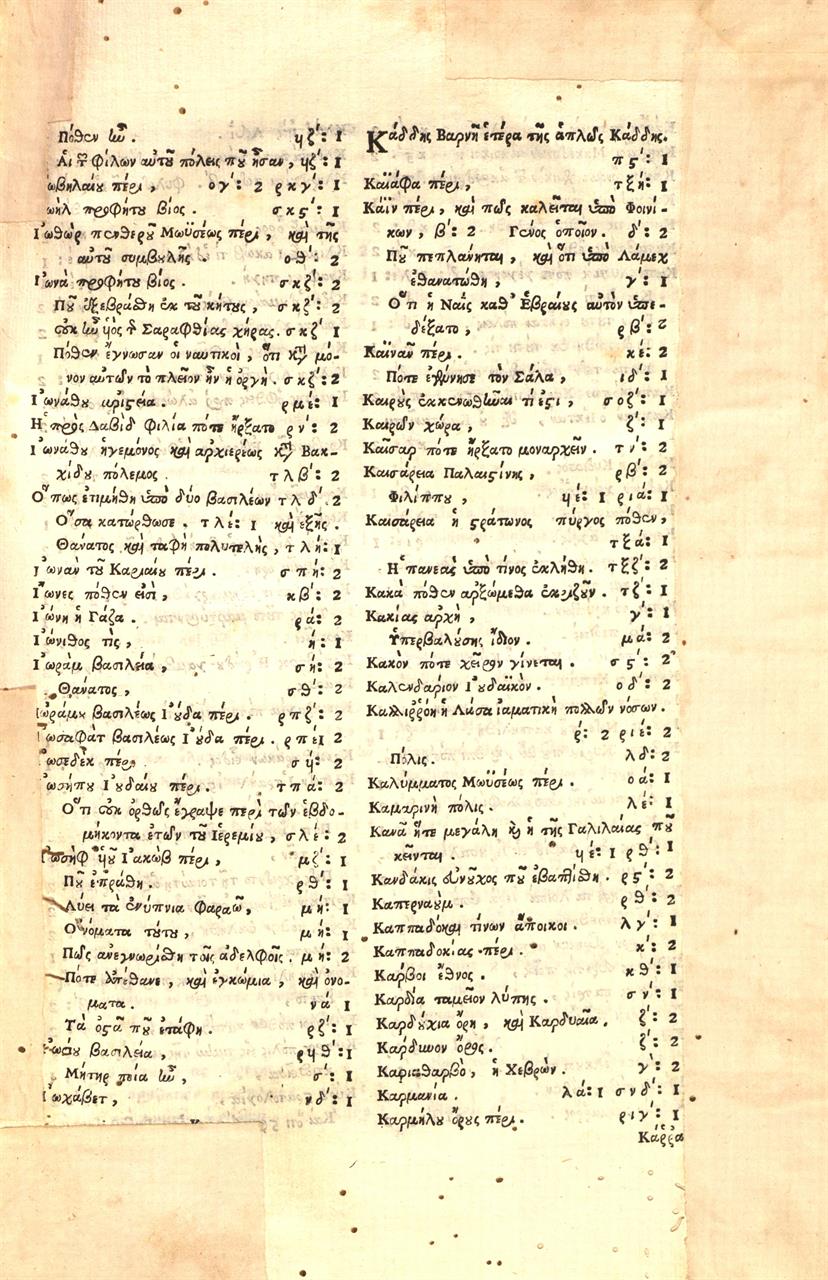 Πόθεν ἦν. ϟζʹ: 1
Αἱ τῶν Φίλων αὐτοῦ πόλεις ποῦ ἦσαν, ϟζʹ: 1
ωβηλαίου πέρι, ογʹ: 2 ρκγʹ: 1
ωὴλ προφήτου βίος. σκςʹ: 1
Ἰωθὼρ πενθεροῦ Μωϋσέως πέρι, καὶ τῆς
αὐτοῦ συμβουλῆς. οθʹ: 2
Ἰωνᾶ προφήτου βίος. σκζʹ: 2
Ποῦ ἐξεβράσθη ἐκ τοῦ κήτους, σκζʹ: 2
οὐκ ἦν υἱὸς τῆς Σαραφθίας χήρας. σκζʹ 1
Πόθεν ἔγνωσαν οἱ ναυτικοὶ, ὅτι κατὰ μό-
νον αὐτῶν τὸ πλεῖον ἦν ἡ ὀργή. σκζʹ: 2
Ἰωνάθου ἀριστεία. ρμέ: 1
Ἡ πρὸς Δαβὶδ φιλία πότε ἤρξατο ρνʹ: 2
Ἰωνάθου ἡγεμόνος καὶ ἀρχιερέως κατὰ Βακ-
χίδου πόλεμος. τλβʹ: 2
Ὅπως ἐτιμήθη ὑπὸ δύο βασιλέων τλδʹ. 2
Ὅσα κατώρθωσε. τλέ: 1 καὶ ἑξῆς.
Θάνατος καὶ ταφὴ πολυτελὴς, τλή: 1
Ἰωνὰν τοῦ Καριαίου πέρι. σπή: 2
Ἴωνες πόθεν εἰσὶ, κβʹ: 2
Ἰώνη ἡ Γάζα. ρά: 2
Ἰώνιθος τὶς, ή: 1
Ἰωρὰμ βασιλεία, σή: 2
Θάνατος, σθʹ: 2
Ἰωρὰμ βασιλέως Ἰούδα πέρι. ρπζʹ: 2
Ἰωσαφὰτ βασιλέως Ἰούδα πέρι. ρπέ 2
Ἰωσεδὲκ πέρι. σή: 2
Ἰωσήπου Ἰουδαίου πέρι. τπά: 2
Ὅτι οὐκ ὀρθῶς ἔγραψε περὶ τῶν ἑβδο-
μήκοντα ἐτῶν τοῦ Ἱερεμίου, σλέ: 2
Ἰωσὴφ υἱοῦ Ἰακὼβ πέρι, μζʹ: 1
Ποῦ ἐπράθη. ρθʹ: 1
Λύει τὰ ἐνύπνια Φαραῶ, μή: 1
Ὀνόματα τούτου, μή: 1
Πῶς ἀνεγνωρίσθη τοῖς ἀδελφοῖς. μή: 2
Πότε ἀπέθανε, καὶ ἐγκώμια, καὶ ὀνό-
ματα. νά 1
Τὰ ὀστᾶ ποῦ ἐτάφη. ρζʹ: 1
Ἰωσίου βασιλεία, ρϟθʹ: 1
Μήτηρ ποία ἦν, σʹ: 1
Ἰωχάβετ, νδʹ: 1
Κάδδης Βαρνῆ ἑτέρα τῆς ἁπλῶς Κάδδης.
πςʹ: 1
Καϊάφα πέρι, τξή: 1
Κάϊν πέρι, καὶ πῶς καλεῖται ὑπὸ Φοινί-
κων, βʹ: 2 Γένος ὁποῖον. δʹ: 2
Ποῦ πεπλάνηται, καὶ ὅτι ὑπὸ Λάμεκ
ἐθανατώθη, γʹ: 1
Ὅτι ἡ Ναῒς καθʼ Ἑβραίους αὐτὸν ὑπε-
δέξατο, ρβʹ: 2
Καϊνᾶν πέρι. κέ: 2
Πότε ἐγέννησε τὸν Σάλα, ιδʹ: 1
Καιροὺς ἐκκενωθῆναι τί ἐστι, σοζʹ: 1
Καιρῶν χώρα, ζʹ: 1
Καῖσαρ πότε ἤρξατο μοναρχεῖν. τνʹ: 2
Καισάρεια Παλαιστίνης, ρβʹ: 2
Φιλίππου, ϟέ: 1 ριά: 1
Καισάρεια ἡ στράτωνος πύργος πόθεν,
τξά: 1
Ἡ πανεὰς ὑπὸ τίνος ἐκλήθη. τξζʹ: 2
Κακὰ πόθεν ἀρξώμεθα ἐκριζοῦν. τζʹ: 1
Κακίας ἀρχὴ, γʹ: 1
Ὑπερβαλούσης ἴδιον. μά: 2
Κακὸν πότε χεῖρον γίνεται. σςʹ: 2
Καλενδάριον Ἰουδαϊκὸν. οδʹ: 2
Καλλιρρόη ἡ Λάσα ἰαματικὴ πολλῶν νόσων.
ρʹ: 2 ριέ: 2
Πόλις. λδʹ: 2
Καλύμματος Μωϋσέως πέρι. οά: 1
Καμαρινὴ πόλις. λέ: 1
Κανᾶ ἥτε μεγάλη καὶ ἡ τῆς Γαλιλαίας ποῦ
κεῖνται. ϟέ: 1 ρθʹ: 1
Κανδάκις εὐνοῦχος ποῦ ἐβαπτίσθη. ρςʹ: 2
Καπερναούμ. ρθʹ: 2
Καππαδόκαι τίνων ἄποικοι. λγʹ: 1
Καππαδοκίας πέρι. κʹ: 2
Κάρβοι ἔθνος. κθʹ: 1
Καρδία ταμεῖον λύπης. σνʹ: 1
Καρδούχια ὄρη, καὶ Καρδυαῖα. ζʹ: 2
Κάρδιμον ὄρος. ζʹ: 2
Καριαθαρβὸ, ἡ Χεβρών. γʹ: 2
Καρμανία. λά: 1 σνδʹ: 1
Καρμήλου ὄρους πέρι. ριγʹ: 1
Κάρρα